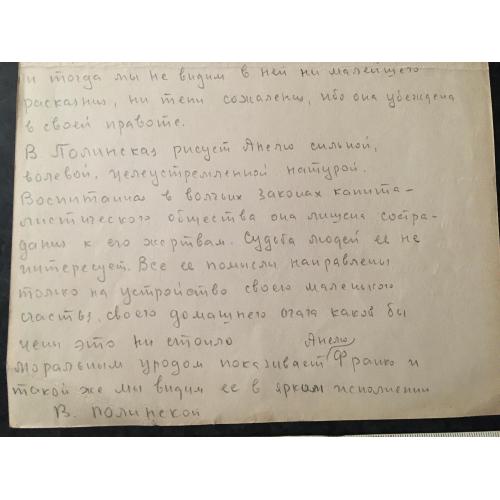 и тогда мы не видим в ней ни малейшего
раскаяния, ни тени сожаления, ибо она убеждена
в своей правоте.
В Полинская рисует Анелю сильной,
волевой, целеустремленной натурой.
Воспитанная в волчьих законах капита-
листического общества она лишена состра-
дания к его жертвам. Судьба людей ее не
интересует. Все ее помыслы направлены
только на устройство своего маленького
счастья, своего домашнего очага каков бы
ценой это ни стоило
Анелю
моральным уродом показывает Франко и
такой же мы видим ее в ярком исполнении
В. Полинской